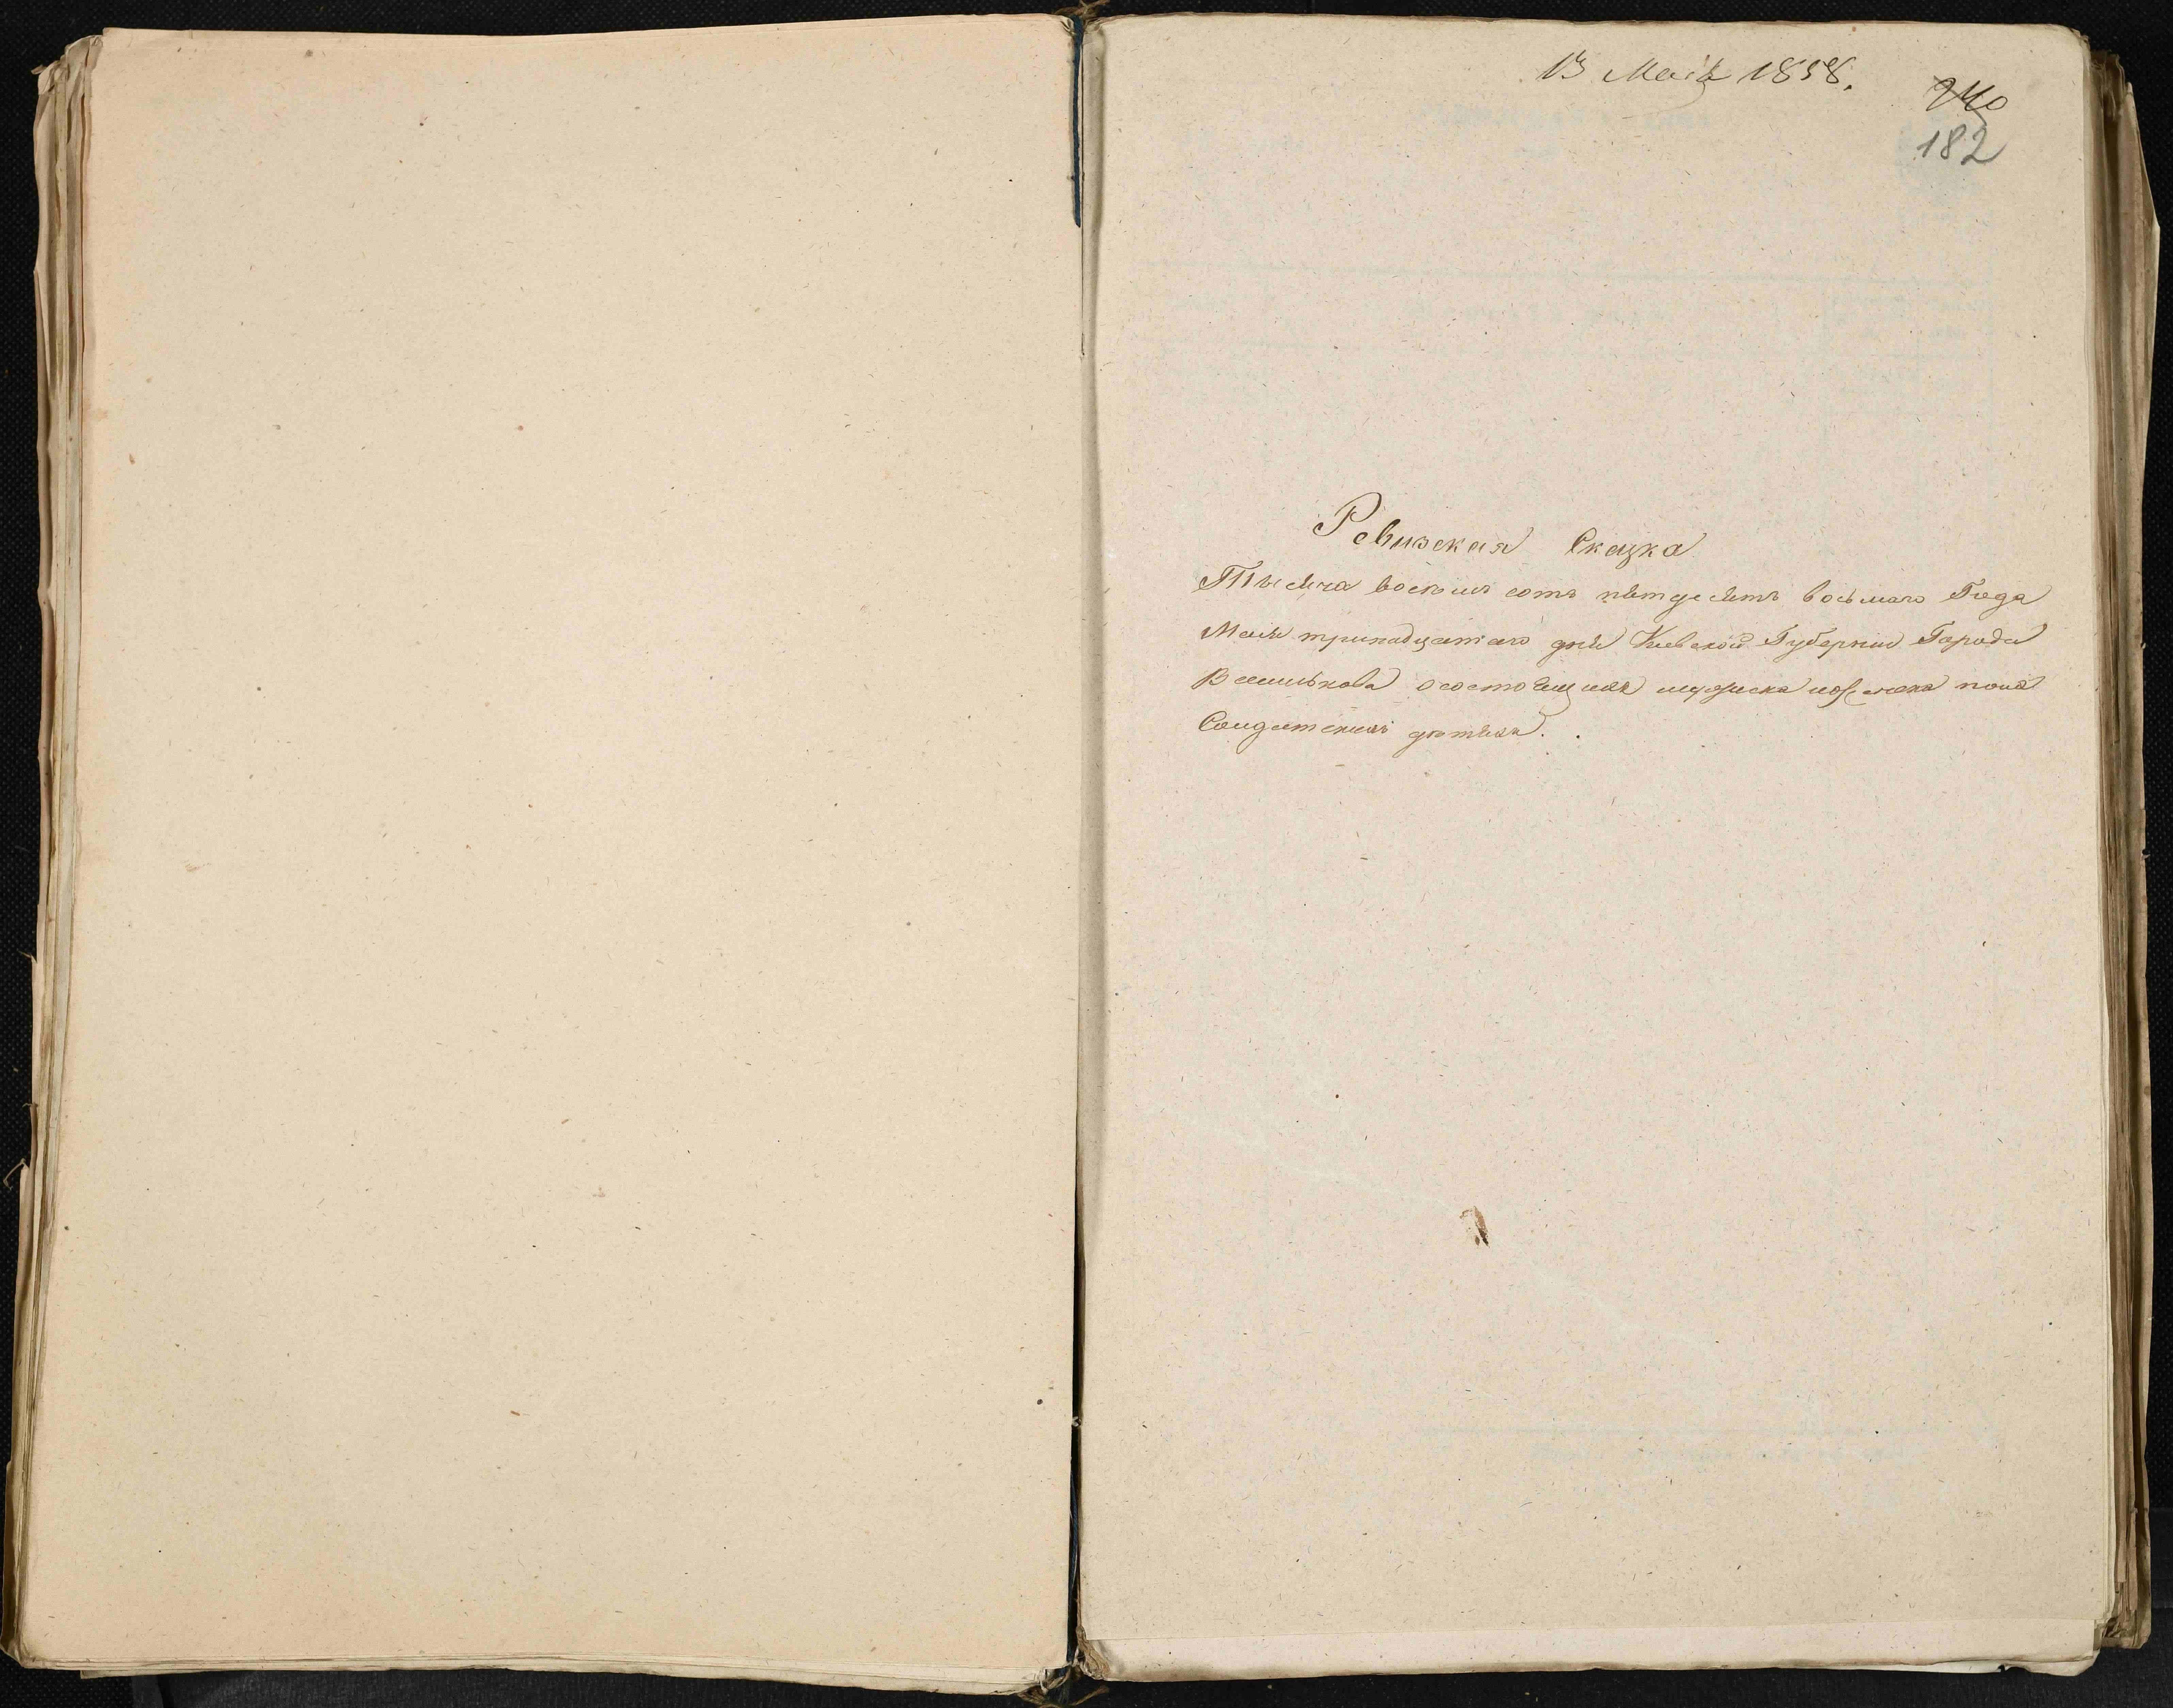 13 Маія 1858.
240
182
Ревизская Сказка
Тысяча восемь сотъ пятдесятъ восьмаго Года
Маія тринадцатаго дня Киевской Губернии Города
Василькова о состоящихъ мужеска и женска пола
Солдатскихъ дѣтяхъ.